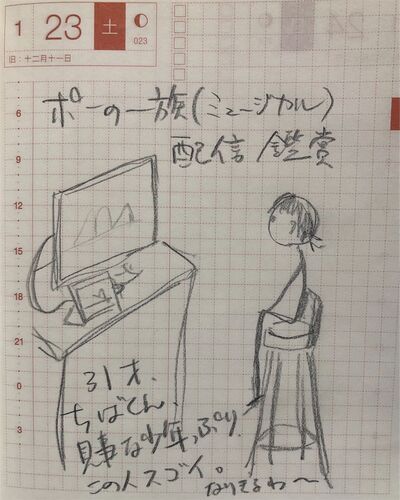 1 23 土
023
旧:十二月十一日
ポーの一族(ミュージカル)
配信 鑑賞
6
9
12
15
18
21
0
3
引才、
ちばくん、
見事な少年っぷり
この人スゴイ。
なりきるわ〜